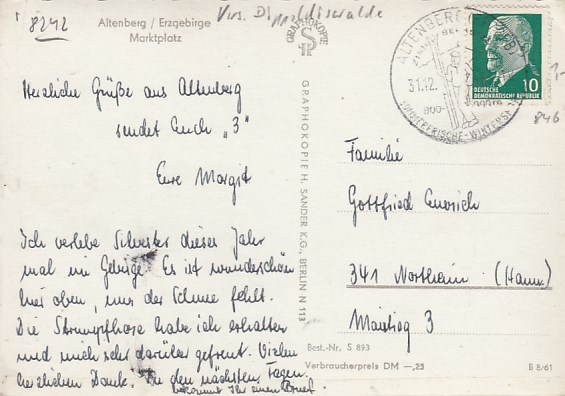 8242
Altenberg / Erzgebirge
Marktplatz
Krs. Dippoldiswalde
GRAPHOKOPIE
Herzliche Grüße aus Altenberg
sendet Euch „3"
Eure Margit
Ich verlebe Silvester dieses Jahr
mal im Gebirge. Es ist wunderschön
hier oben, nur der Schnee fehlt.
Die Strumpfhose habe ich erhalten
und mich sehr darüber gefreut. Vielen
herzlichen Dank. In den nächsten Tagen
bekommt Ihr einen Brief.
GRAPHOKOPIE H. SANDER K.G., BERLIN N 113
ALTENBERG
31.12.
800
SOMMERFRISCHE-WINTERSP
DEUTSCHE
DEMOKRATISCHE REPUBLIK
10
1,-
846
Familie
Gottfried
341 Northeim (Hann.)
3
Best.-Nr. S 893
Verbraucherpreis DM —,25
B 8/61